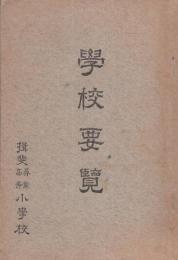 學校要覽
揖斐尋常高等小學校